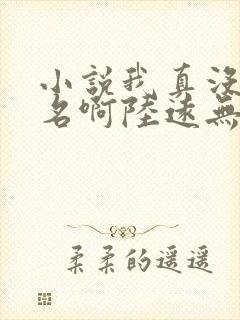 小說我真沒
名啊陸遠無
柔柔的遥遥